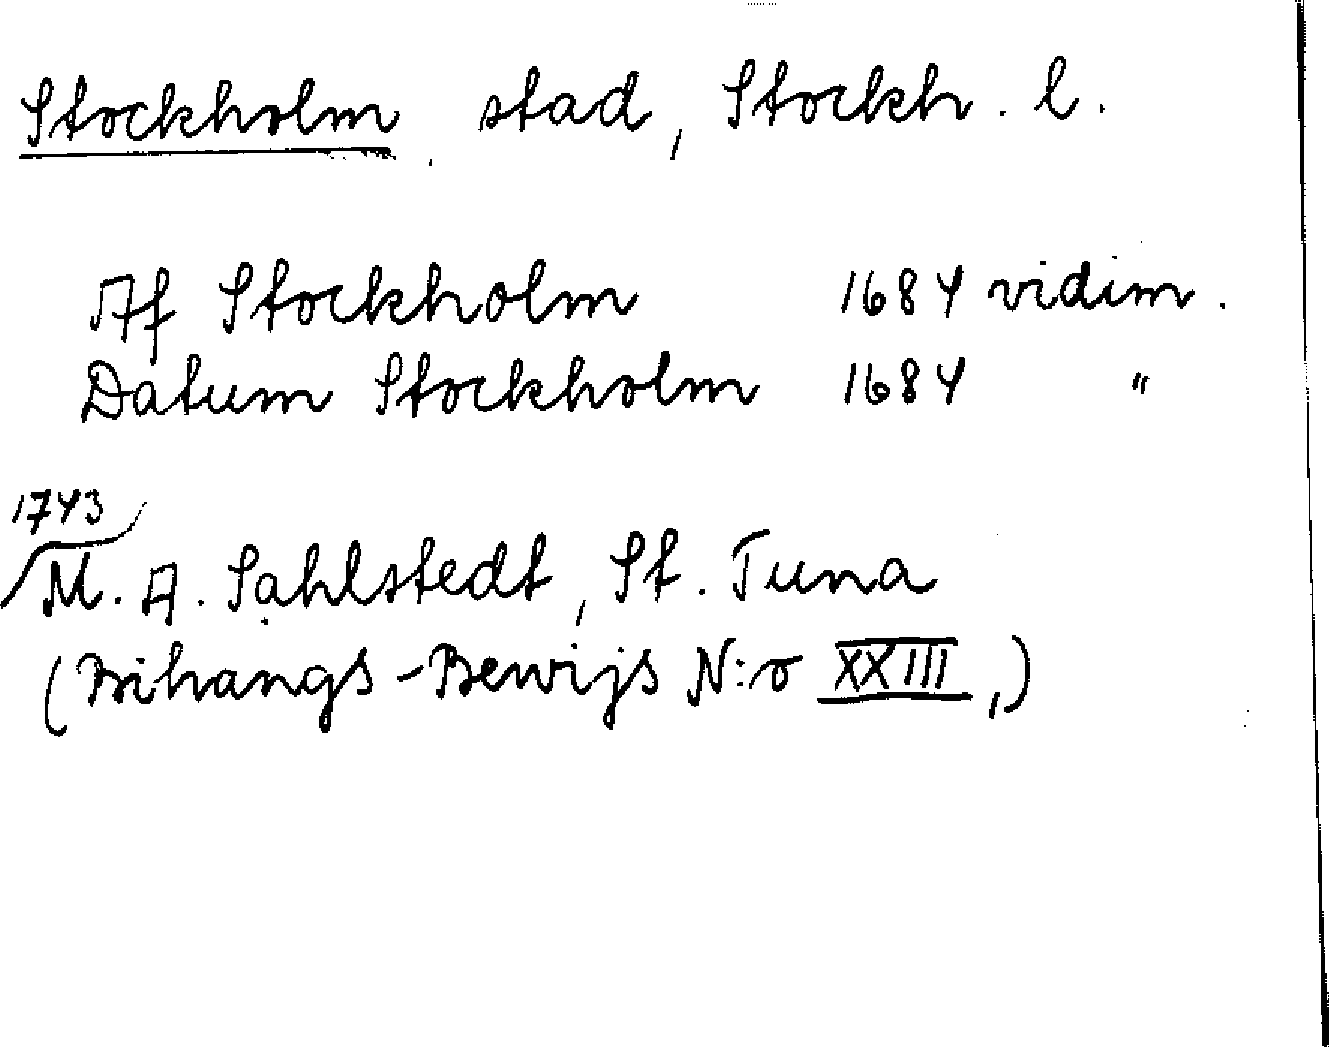 Stockholm stad, Stockh. l.
Af Stockholm 1684 vidim.
Datum Stockholm 1684 "
1743
M. A. Sahlstedt, St. Tuna
(Bihangs-Bewijs N:o XXIII,)